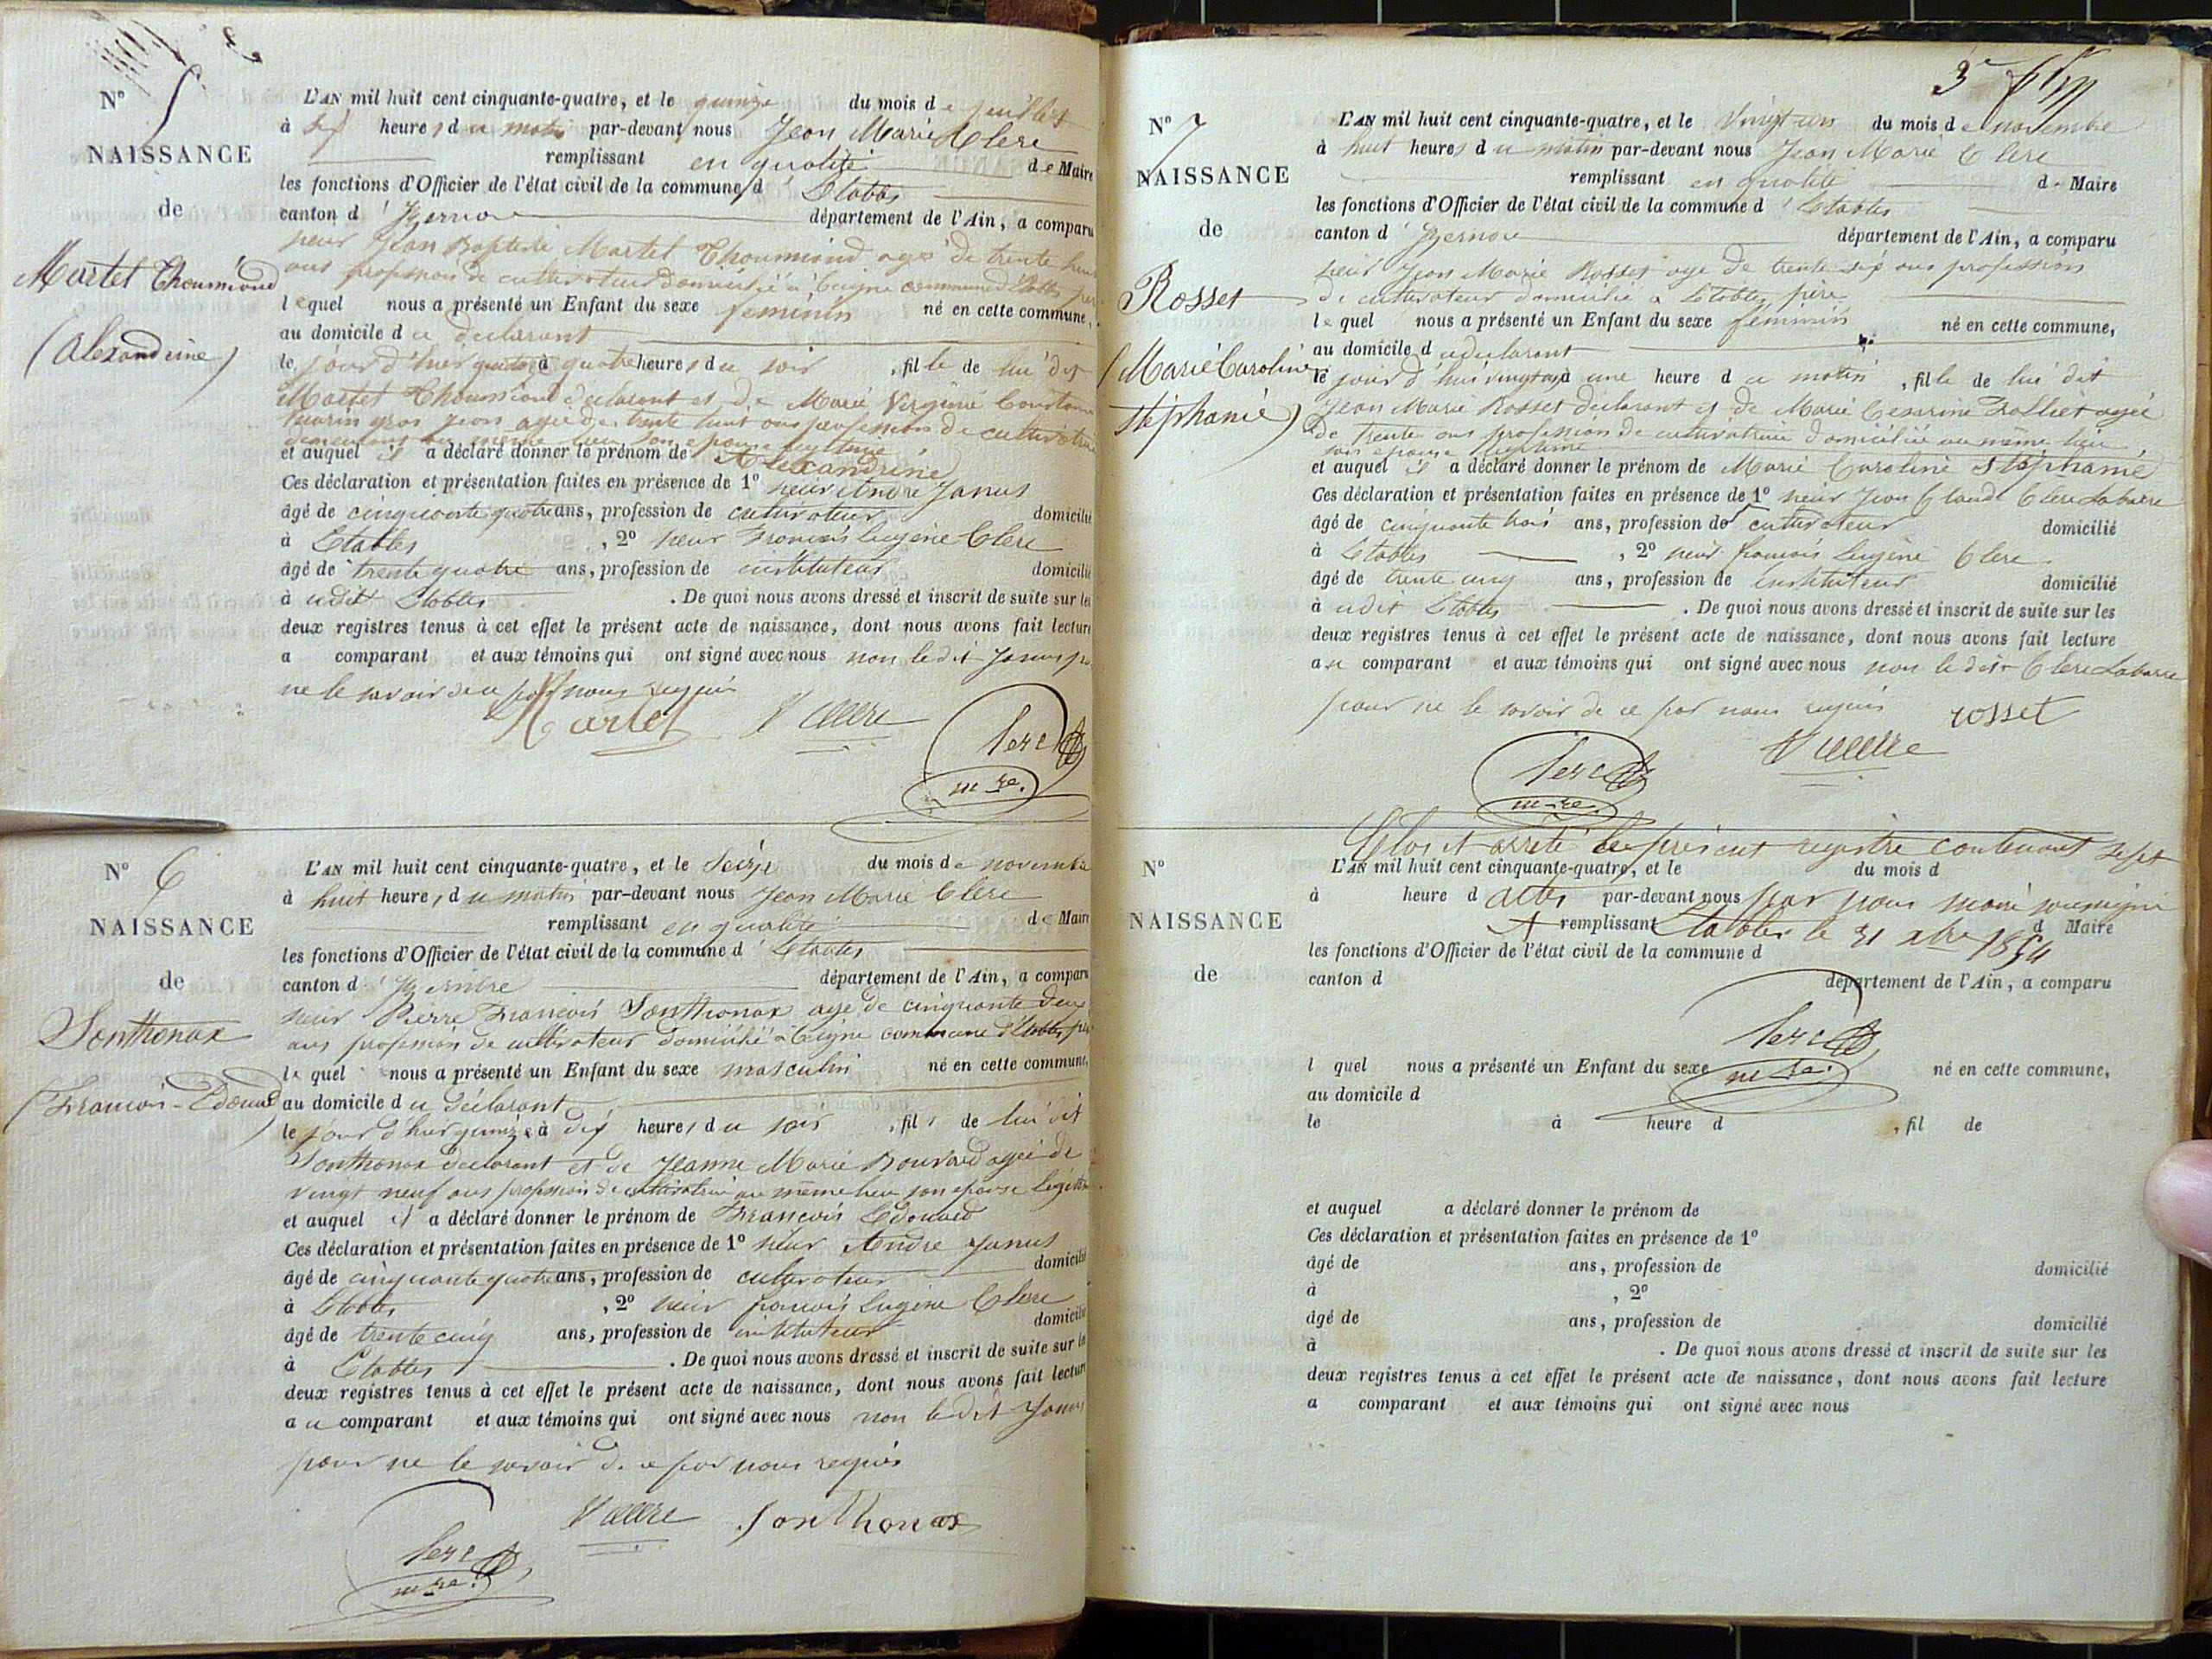 N° 5
NAISSANCE
de
Martel Thoumiond
(Alexandrine)
L'AN mil huit cent cinquante-quatre, et le quinze du mois de juillet
à six heures du matin par-devant nous Jean Marie Clerc
remplissant en qualité de Maire
les fonctions d'Officier de l'état civil de la commune d' Etables
canton d' Izernore département de l'Ain, a comparu
sieur Jean Baptiste Martel Thoumiond agé de trente huit
ans profession de cultivateur domicilié à Ceigne commune d'Etables père
lequel nous a présenté un Enfant du sexe feminin né en cette commune,
au domicile du declarant
le jour d'hier quatorze à quatre heures du soir, fille de lui dit
Martel Thoumiond declarant et de Marie Virginie Constance
gros Jean agée de trente huit ans profession de cultivatrice
demeurant au même lieu son epouse legitime
et auquel il a déclaré donner le prénom de Alexandrine
Ces déclaration et présentation faites en présence de 1° sieur André Janus
âgé de cinquante quatre ans, profession de cultivateur domicilié
à Etables, 2° sieur François Eugène Clerc
âgé de trente quatre ans, profession de instituteur domicilié
à udit Etables. De quoi nous avons dressé et inscrit de suite sur les
deux registres tenus à cet effet le présent acte de naissance, dont nous avons fait lecture
a comparant et aux témoins qui ont signé avec nous non le dit Janus pr
ne le savoir de ce par nous requis
Martel Clerc
Clerc
mre.
N° 6
NAISSANCE
de
Sonthonax
(François-Edouard)
L'AN mil huit cent cinquante-quatre, et le Seize du mois de novembre
à huit heures du matin par-devant nous Jean Marie Clerc
remplissant en qualité de Maire
les fonctions d'Officier de l'état civil de la commune d' Etables
canton d' Izernore département de l'Ain, a comparu
sieur Pierre François Sonthonax age de cinquante deux
ans profession de cultivateur domicilié à Ceigne commune d'Etables père
lequel nous a présenté un Enfant du sexe masculin né en cette commune,
au domicile du déclarant
le jour d'hier quinze à dix heures du soir, fils de lui dit
Sonthonax declarant et de Jeanne Marie Bouvard agée de
vingt neuf ans profession de cultivatrice au même lieu son epouse legitime
et auquel il a déclaré donner le prénom de François Edouard
Ces déclaration et présentation faites en présence de 1° sieur André Janus
âgé de cinquante quatre ans, profession de cultivateur domicilié
à Etables, 2° sieur françois Eugène Clerc
âgé de trente cinq ans, profession de instituteur domicilié
à Etables. De quoi nous avons dressé et inscrit de suite sur les
deux registres tenus à cet effet le présent acte de naissance, dont nous avons fait lecture
au comparant et aux témoins qui ont signé avec nous non le dit Janus
pour ne le savoir de ce par nous requis
Clerc Sonthonax
Clerc
mre.
3e
N° 7
NAISSANCE
de
Rosset
(Marie Caroline
Stéphanie)
L'AN mil huit cent cinquante-quatre, et le vingt un du mois de novembre
à huit heures du matin par-devant nous Jean Marie Clerc
remplissant en qualité de Maire
les fonctions d'Officier de l'état civil de la commune d' Etables
canton d' Izernore département de l'Ain, a comparu
sieur Jean Marie Rosset age de trente six ans profession
de cultivateur domicilié à Etables, père
lequel nous a présenté un Enfant du sexe feminin né en cette commune,
au domicile du declarant
le jour d'hui vingt un à une heure du matin, fille de lui dit
Jean Marie Rosset déclarant et de Marie Cesarine Folliet agée
de trente ans profession de cultivatrice domiciliée au même lieu
son epouse legitime
et auquel il a déclaré donner le prénom de Marie Caroline Stéphanie
Ces déclaration et présentation faites en présence de 1° sieur Jean Claude Clerc Labarre
âgé de cinquante trois ans, profession de cultivateur domicilié
à Etables, 2° sieur françois Eugène Clerc
âgé de trente cinq ans, profession de instituteur domicilié
à udit Etables. De quoi nous avons dressé et inscrit de suite sur les
deux registres tenus à cet effet le présent acte de naissance, dont nous avons fait lecture
au comparant et aux témoins qui ont signé avec nous non le dit Clerc Labarre
pour ne le savoir de ce par nous requis rosset
Clerc
Clerc
mre.
Clos et arrêté le présent registre contenant sept
actes par nous maire soussigné
A Etables le 31 xbre 1854
Clerc
mre.
N°
NAISSANCE
de
L'AN mil huit cent cinquante-quatre, et le du mois d
à heure d par-devant nous
remplissant d Maire
les fonctions d'Officier de l'état civil de la commune d
canton d département de l'Ain, a comparu
l quel nous a présenté un Enfant du sexe né en cette commune,
au domicile d
le à heure d , fil de
et auquel a déclaré donner le prénom de
Ces déclaration et présentation faites en présence de 1°
âgé de ans, profession de domicilié
à , 2°
âgé de ans, profession de domicilié
à . De quoi nous avons dressé et inscrit de suite sur les
deux registres tenus à cet effet le présent acte de naissance, dont nous avons fait lecture
a comparant et aux témoins qui ont signé avec nous